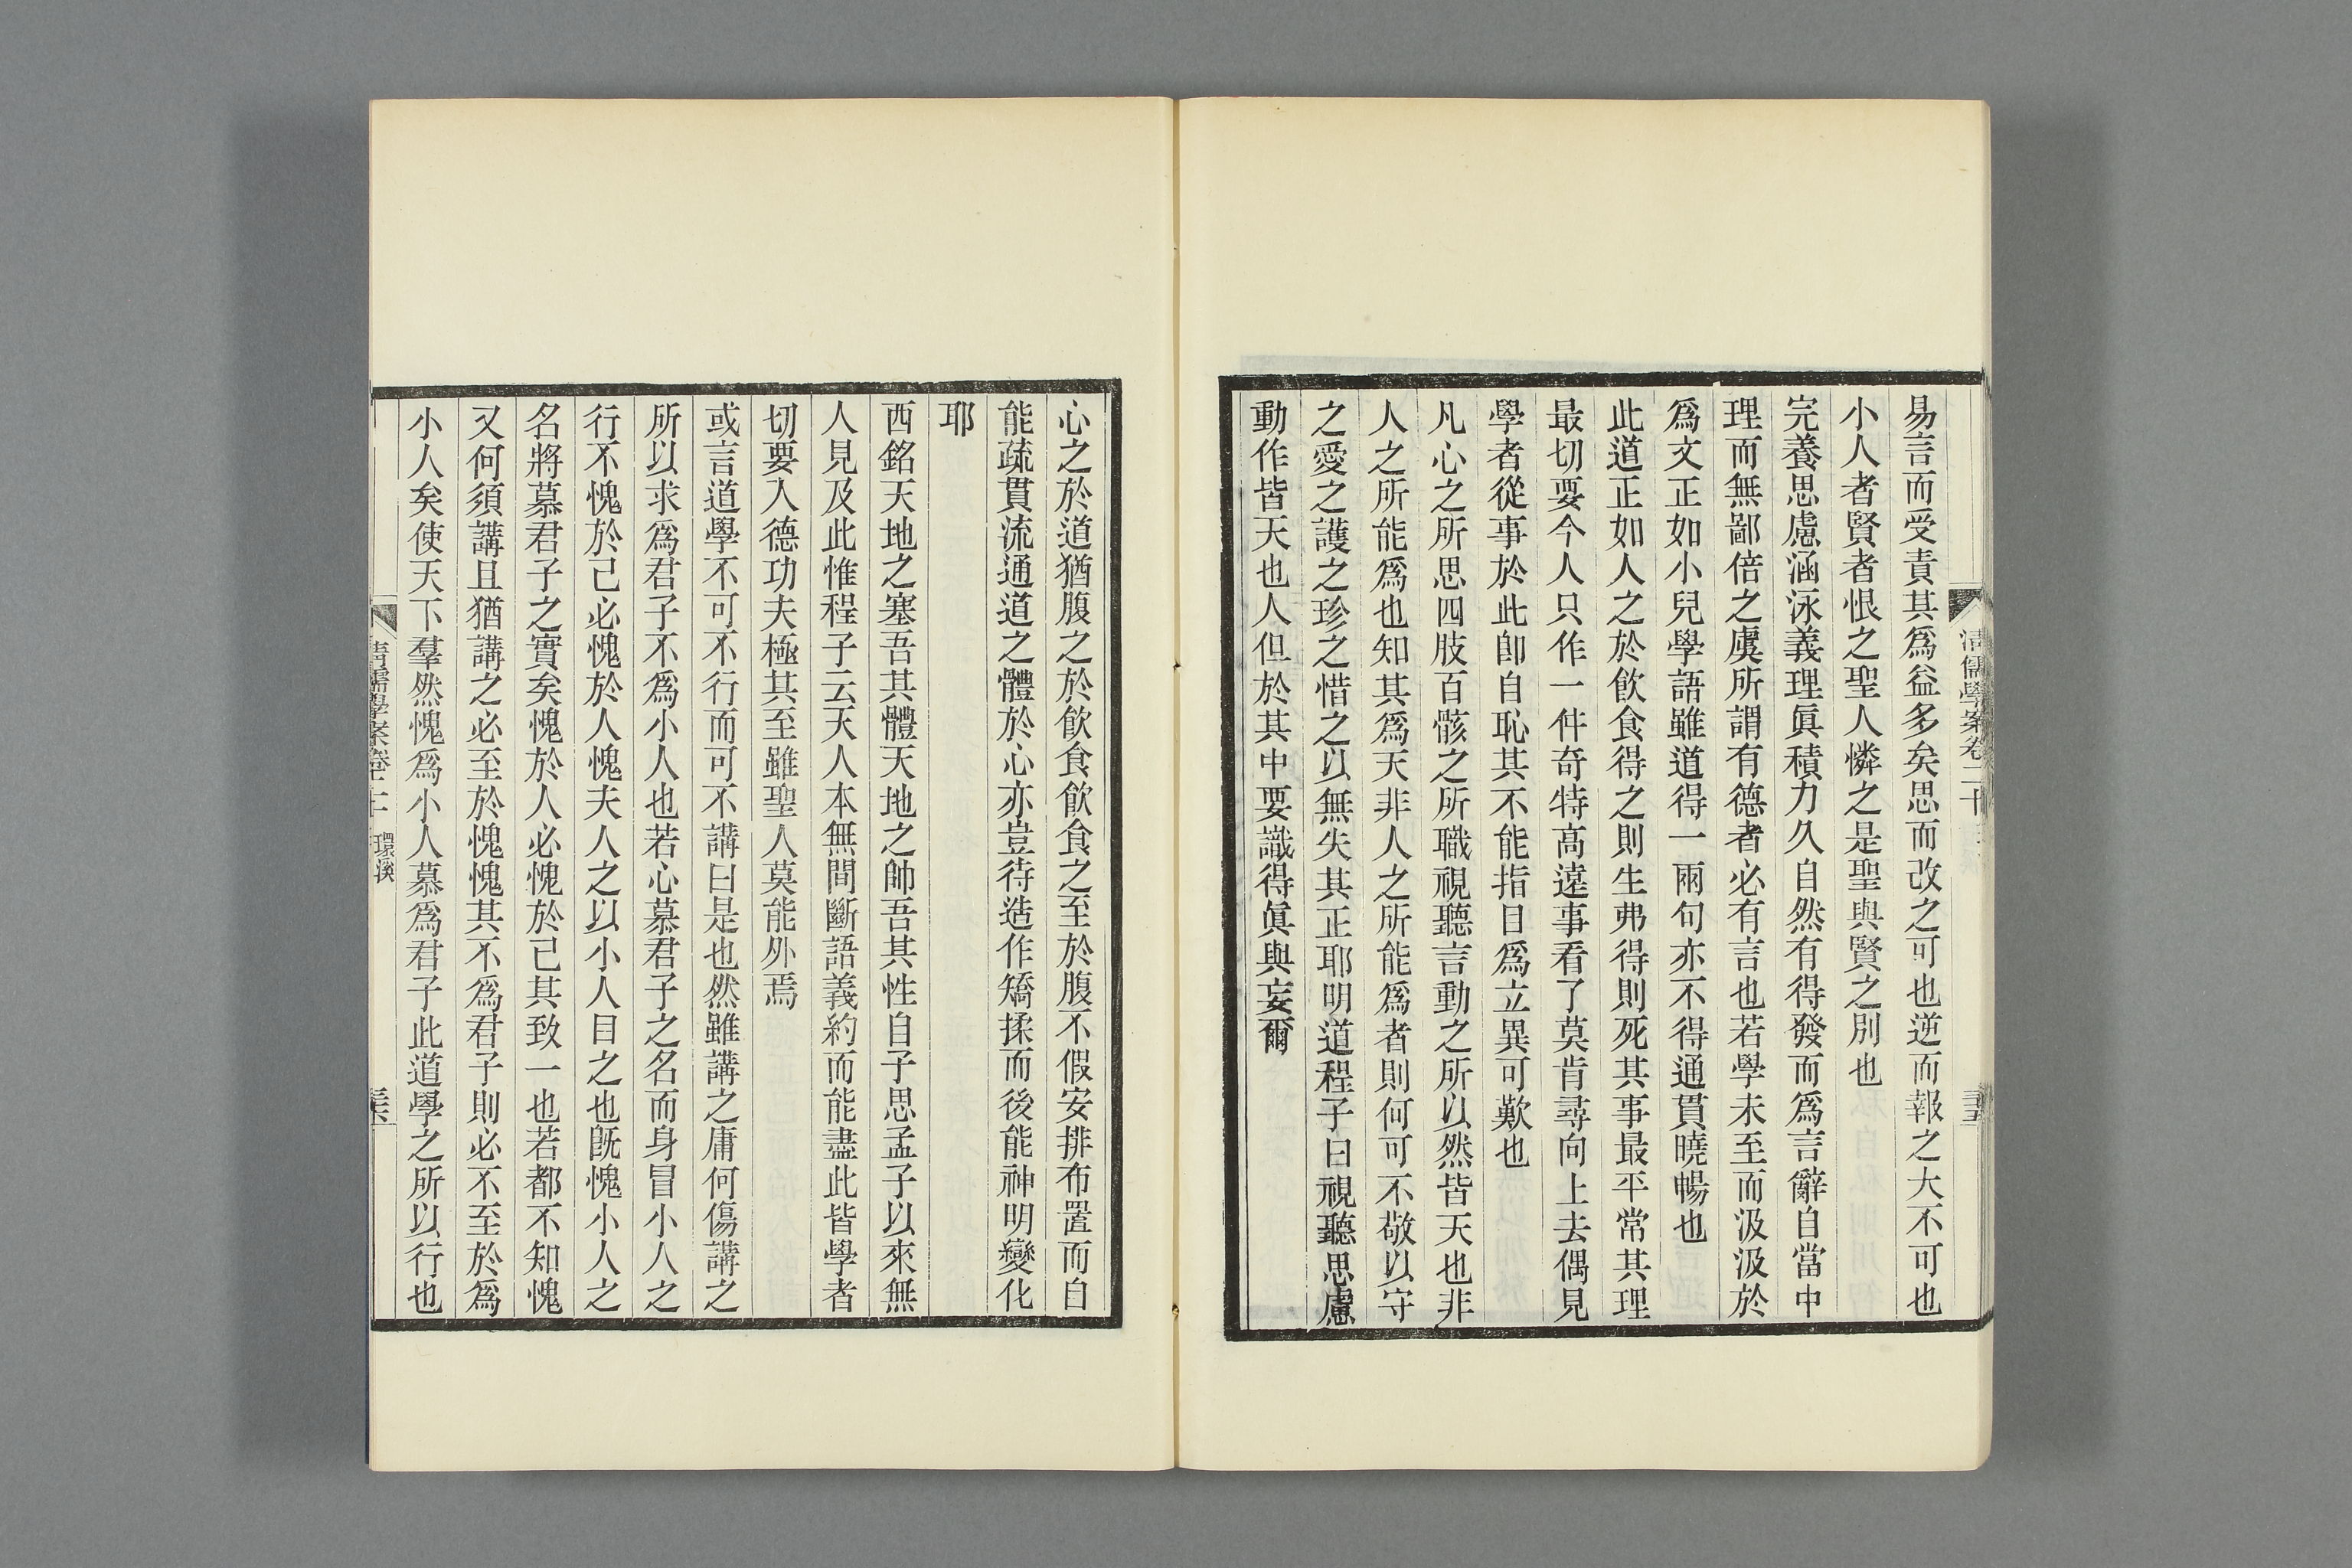 清儒學案卷二十
易言而受責其爲益多矣思而改之可也逆而報之大不可也
小人者賢者恨之聖人憐之是聖與賢之別也
完養思慮涵泳義理眞積力久自然有得發而爲言辭自當中
理而無鄙倍之虞所謂有德者必有言也若學未至而汲汲於
爲文正如小兒學語雖道得一兩句亦不得通貫曉暢也
此道正如人之於飮食得之則生弗得則死其事最平常其理
最切要今人只作一件奇特高遠事看了莫肯尋向上去偶見
學者從事於此卽自恥其不能指目爲立異可歎也
凡心之所思四肢百骸之所職視聽言動之所以然皆天也非
人之所能爲也知其爲天非人之所能爲者則何可不敬以守
之愛之護之珍之惜之以無失其正耶明道程子曰視聽思慮
動作皆天也人但於其中要識得眞與妄爾
心之於道猶腹之於飮食飮食之至於腹不假安排布置而自
能疏貫流通道之體於心亦豈待造作矯揉而後能神明變化
耶
西銘天地之塞吾其體天地之帥吾其性自子思孟子以來無
人見及此惟程子云天人本無間斷語義約而能盡此皆學者
切要入德功夫極其至雖聖人莫能外焉
或言道學不可不行而可不講曰是也然雖講之庸何傷講之
所以求爲君子不爲小人也若心慕君子之名而身冒小人之
行不愧於己必愧於人愧夫人之以小人目之也旣愧小人之
名將慕君子之實矣愧於人必愧於己其致一也若都不知愧
又何須講且猶講之必至於愧愧其不爲君子則必不至於爲
小人矣使天下羣然愧爲小人慕爲君子此道學之所以行也
清儒學案卷二十 環溪